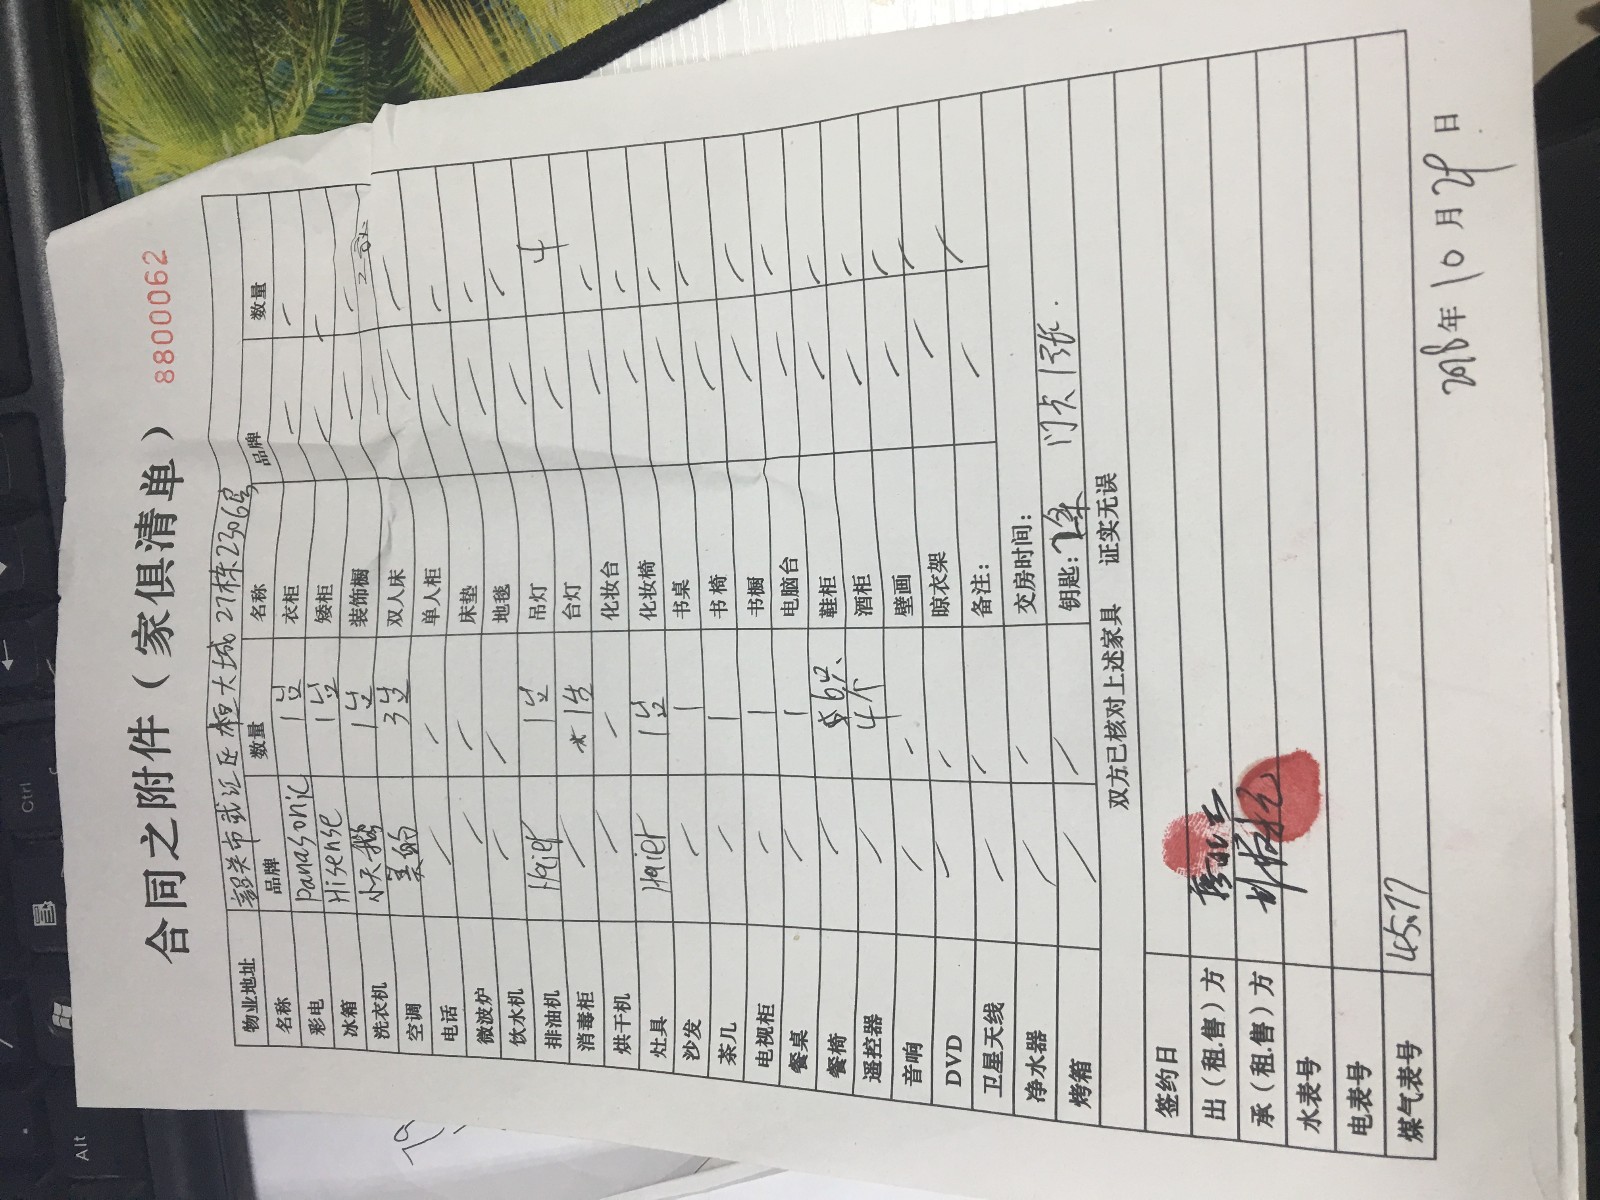 8800062
合同之附件（家俱清单）
物业地址 韶关市武江区恒大城27栋2306号
名称 品牌 数量 名称 品牌 数量
彩电 Panasonic 1台 衣柜 / /
冰箱 Hisense 1台 矮柜 / /
洗衣机 小天鹅 1台 装饰橱 / /
空调 美的 3台 双人床 / /
电话 / / 单人柜 / /
微波炉 / / 床垫 / /
饮水机 / / 地毯 / /
排油机 Haier 1台 吊灯 / 4
消毒柜 / 1台 台灯 / /
烘干机 / / 化妆台 / /
灶具 Haier 1台 化妆椅 / /
沙发 / 1 书桌 / /
茶几 / 1 书椅 / /
电视柜 / 1 书橱 / /
餐桌 / 1 电脑台 / /
餐椅 / 6只 鞋柜 / /
遥控器 / 4个 酒柜 / /
音响 / / 壁画 / /
DVD / / 晾衣架 / /
卫星天线 / / 备注：
净水器 / / 交房时间：
烤箱 / / 钥匙： 门卡1张.
双方已核对上述家具 证实无误
签约日
出（租.售）方
承（租.售）方
水表号
电表号
煤气表号 45.77
2018年10月29日
Ctrl
Alt